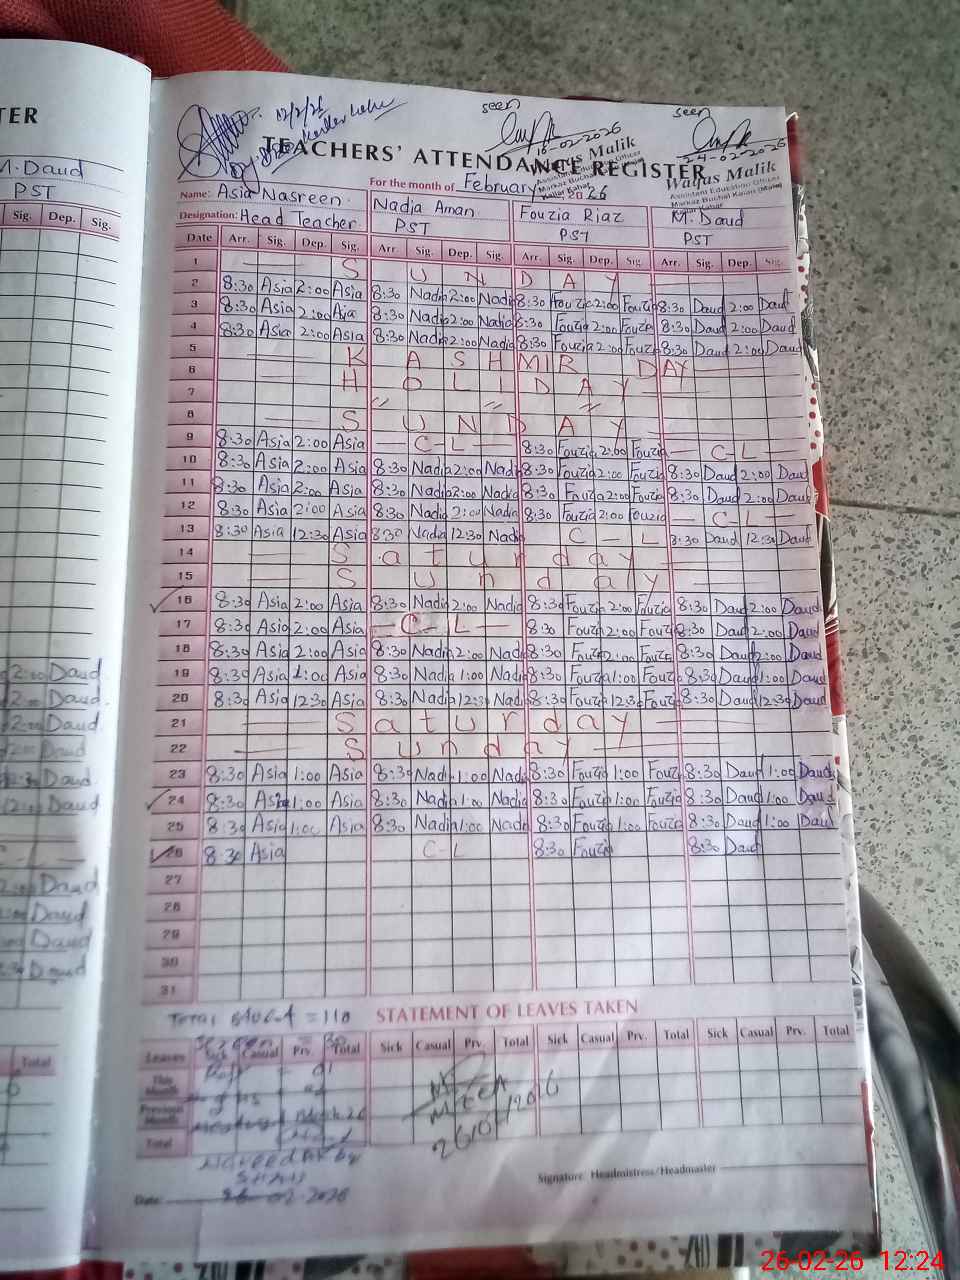 TER
M. Daud
PST
Sig. Dep. Sig.
12/2/26
seen
16-02-2026
seen
24-02-2026
TEACHERS' ATTENDANCE REGISTER
Waqas Malik
Assistant Education Officer
Markaz Buchal Kalan
Kallar Kahar
Waqas Malik
Assistant Education Officer
Markaz Buchal Kalan
Kallar Kahar
For the month of February 2026
Name: Asia Nasreen Nadia Aman Fouzia Riaz M. Daud
Designation: Head Teacher PST PST PST
Date Arr. Sig. Dep. Sig. Arr. Sig. Dep. Sig. Arr. Sig. Dep. Sig. Arr. Sig. Dep. Sig.
1 S U N D A Y
2 8:30 Asia 2:00 Asia 8:30 Nadia 2:00 Nadia 8:30 Fouzia 2:00 Fouzia 8:30 Daud 2:00 Daud
3 8:30 Asia 2:00 Asia 8:30 Nadia 2:00 Nadia 8:30 Fouzia 2:00 Fouzia 8:30 Daud 2:00 Daud
4 8:30 Asia 2:00 Asia 8:30 Nadia 2:00 Nadia 8:30 Fouzia 2:00 Fouzia 8:30 Daud 2:00 Daud
5 K A S H M I R D A Y
6 H O L I D A Y
7 〃 〃 〃
8 S U N D A Y
9 8:30 Asia 2:00 Asia — C-L — 8:30 Fouzia 2:00 Fouzia — C-L —
10 8:30 Asia 2:00 Asia 8:30 Nadia 2:00 Nadia 8:30 Fouzia 2:00 Fouzia 8:30 Daud 2:00 Daud
11 8:30 Asia 2:00 Asia 8:30 Nadia 2:00 Nadia 8:30 Fouzia 2:00 Fouzia 8:30 Daud 2:00 Daud
12 8:30 Asia 2:00 Asia 8:30 Nadia 2:00 Nadia 8:30 Fouzia 2:00 Fouzia — C-L —
13 8:30 Asia 12:30 Asia 8:30 Nadia 12:30 Nadia C - L 8:30 Daud 12:30 Daud
14 S a t u r d a y
15 S u n d a y
16 8:30 Asia 2:00 Asia 8:30 Nadia 2:00 Nadia 8:30 Fouzia 2:00 Fouzia 8:30 Daud 2:00 Daud
17 8:30 Asia 2:00 Asia — C-L — 8:30 Fouzia 2:00 Fouzia 8:30 Daud 2:00 Daud
18 8:30 Asia 2:00 Asia 8:30 Nadia 2:00 Nadia 8:30 Fouzia 2:00 Fouzia 8:30 Daud 2:00 Daud
19 8:30 Asia 1:00 Asia 8:30 Nadia 1:00 Nadia 8:30 Fouzia 1:00 Fouzia 8:30 Daud 1:00 Daud
20 8:30 Asia 12:30 Asia 8:30 Nadia 12:30 Nadia 8:30 Fouzia 12:30 Fouzia 8:30 Daud 12:30 Daud
21 S a t u r d a y
22 S u n d a y
23 8:30 Asia 1:00 Asia 8:30 Nadia 1:00 Nadia 8:30 Fouzia 1:00 Fouzia 8:30 Daud 1:00 Daud
24 8:30 Asia 1:00 Asia 8:30 Nadia 1:00 Nadia 8:30 Fouzia 1:00 Fouzia 8:30 Daud 1:00 Daud
25 8:30 Asia 1:00 Asia 8:30 Nadia 1:00 Nadia 8:30 Fouzia 1:00 Fouzia 8:30 Daud 1:00 Daud
26 8:30 Asia C-L 8:30 Fouzia 8:30 Daud
27
28
29
30
31
STATEMENT OF LEAVES TAKEN
Leaves Sick Casual Prv. Total Sick Casual Prv. Total Sick Casual Prv. Total Sick Casual Prv. Total
This Month
Previous Month
Total
MEA
Signature: Headmistress/Headmaster
Date: 26-02-2026
26-02-26 12:24